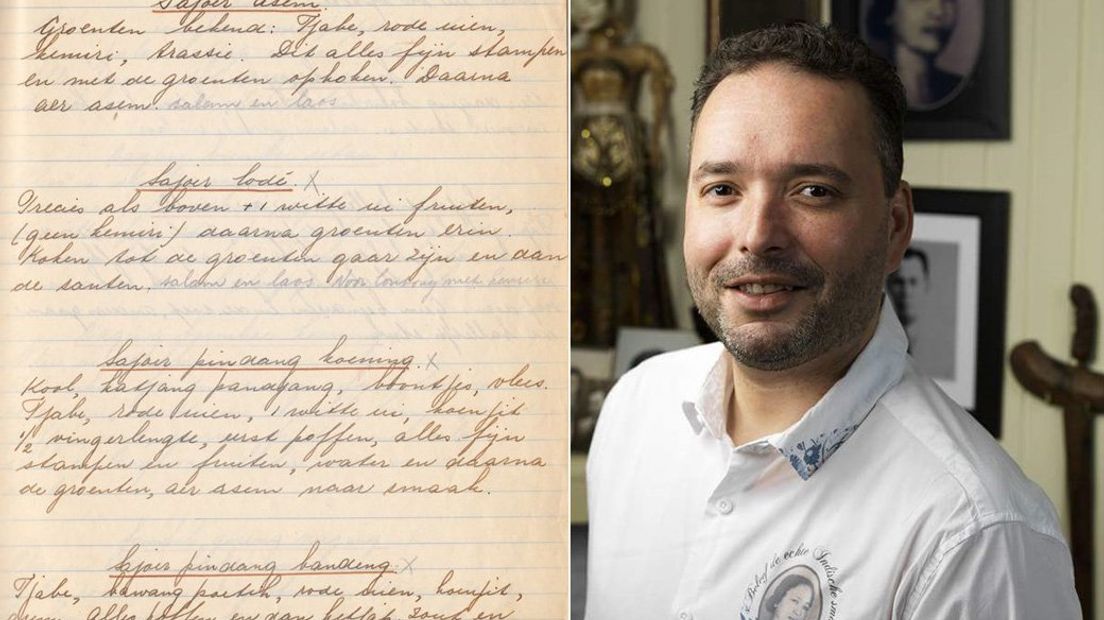 Sajoer asem.
Groenten bekend: Tjabe, rode uien,
kemiri, trassie. Dit alles fijn stampen
en met de groenten opkoken. Daarna
aer asem. salam en laos
Sajoer lodé. X
Precies als boven + 1 witte ui fruiten,
(geen kemiri) daarna groenten erin.
Koken tot de groenten gaar zijn en dan
de santen. salam en laos. Voor lontong met
Sajoer pindang koening. X
Kool, katjang pandjang, boontjes, vlees.
Tjabe, rode uien, 1 witte ui, koenjit
1/2 vingerlengte, eerst poffen, alles fijn
stampen en fruiten, water en daarna
de groenten, aer asem naar smaak.
Sajoer pindang bandeng. X
Tjabe, bawang poetih, rode uien, koenjit,
alles poffen en dan zout en
Beleef de echte Indische